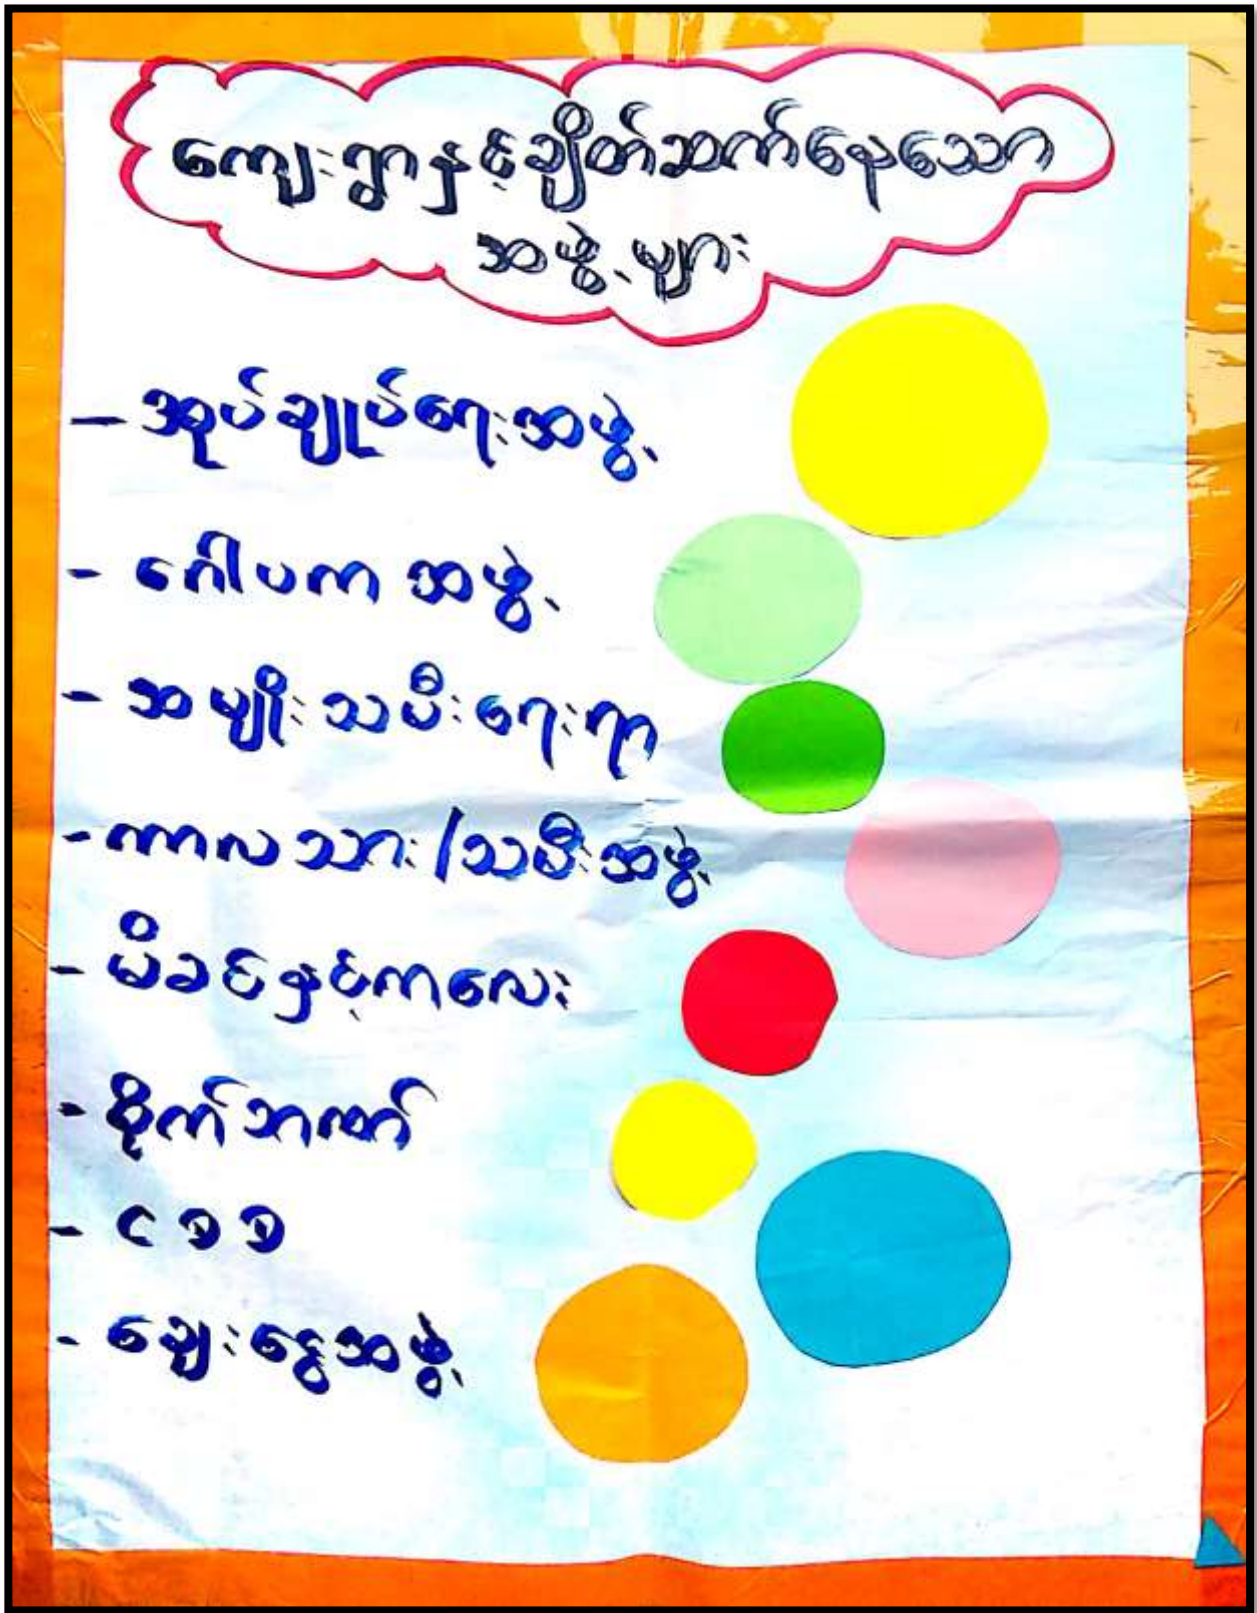 ကျေးရွာနှင့်ချိတ်ဆက်နေသော
အဖွဲ့များ
- အုပ်ချုပ်ရေးအဖွဲ့
- ဂေါပက အဖွဲ့
- အမျိုးသမီးရေးရာ
- ကာလသား/သမီးအဖွဲ့
- မိခင်နှင့်ကလေး
- စိုက်ဘဏ်
- ငစစ
- ချေးငွေအဖွဲ့